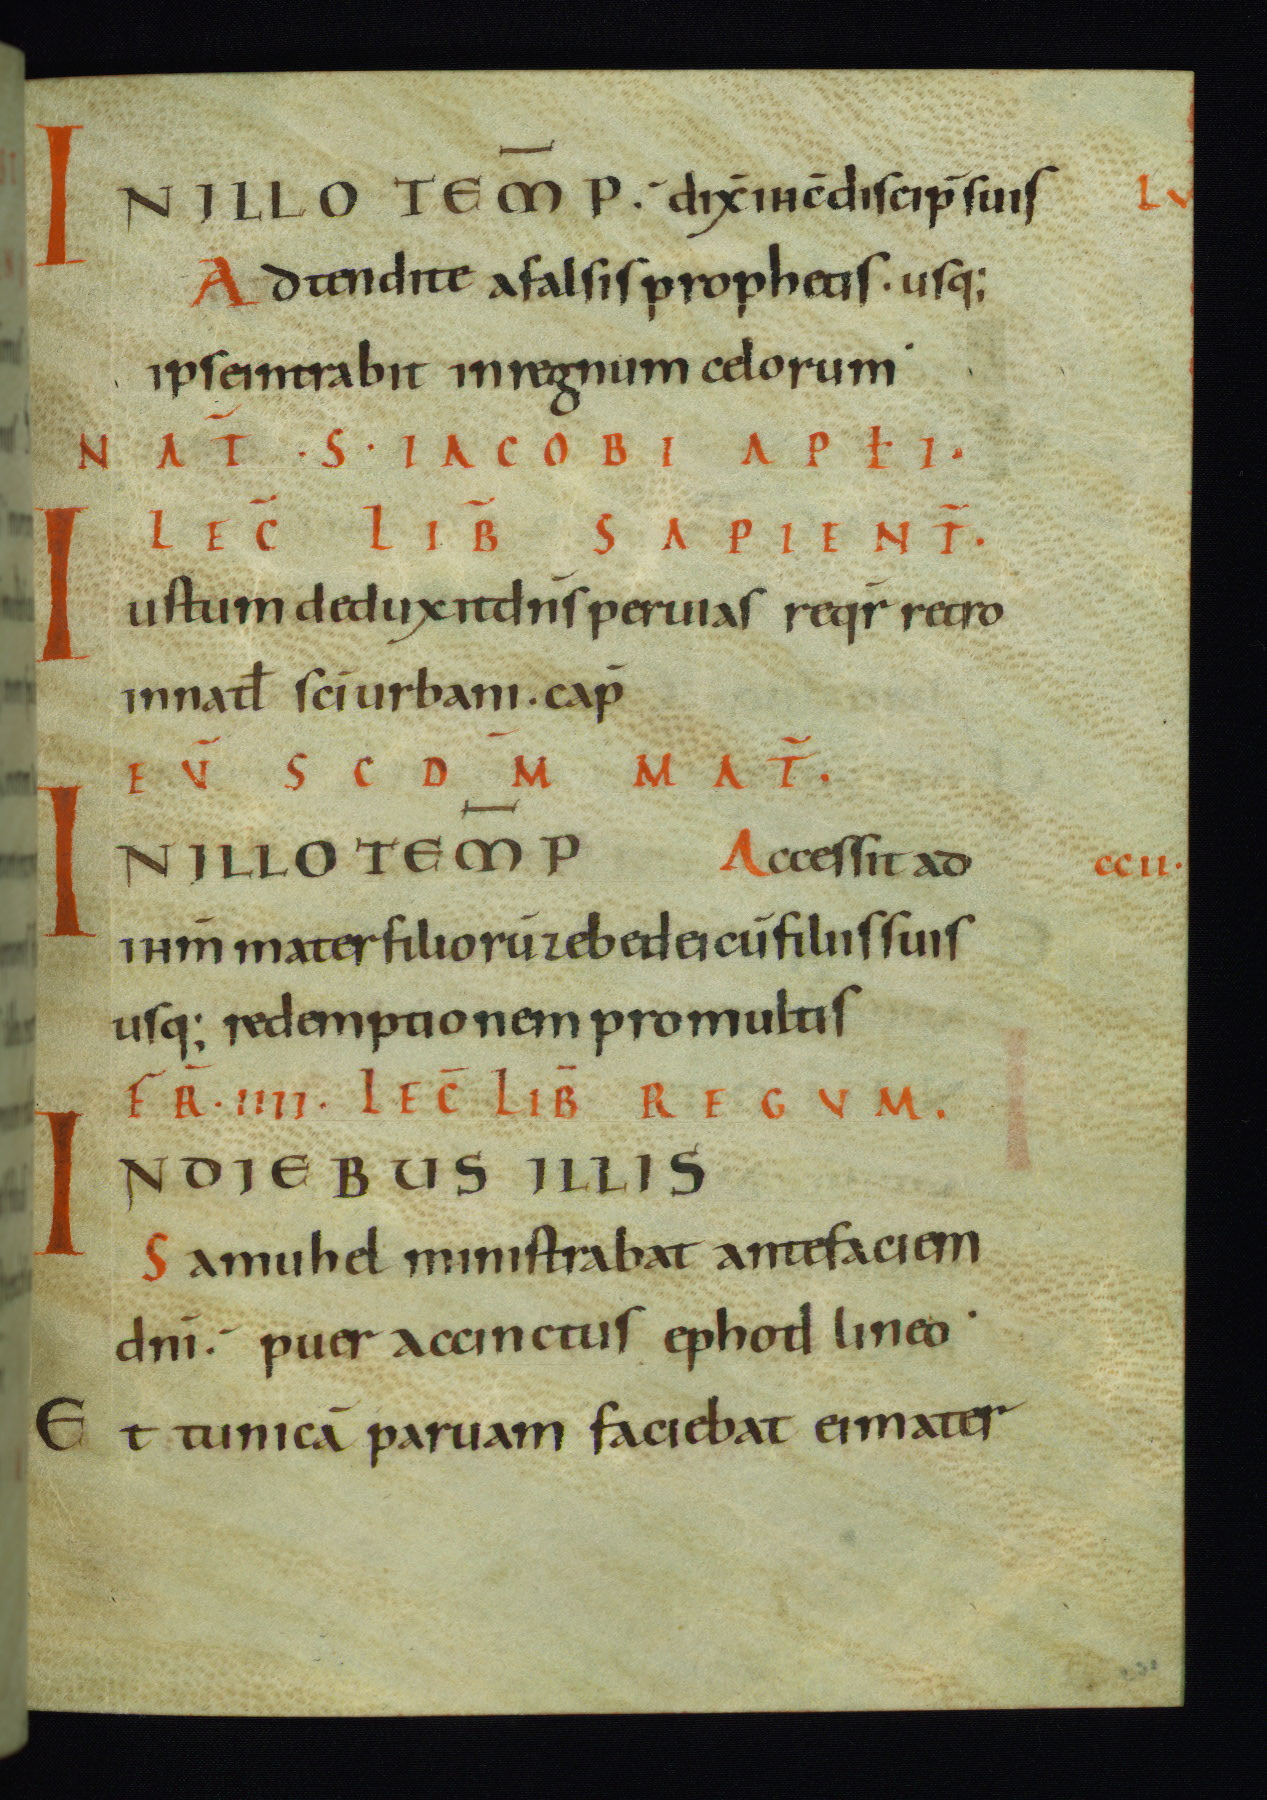 IN ILLO TEM̅P. dix̅ ih̅c discip̅ suis Lv
Adtendite a falsis prophetis. usq;
ipse intrabit in regnum celorum.
NAT̃. S. IACOBI APƚI.
LEC̃ LIB̃ SAPIENT̃.
Iustum deduxit dn̅s per uias reqr̅ retro
in natƚ sc̅i urbani. cap̅
EṼ SCDM̅ MAT̃.
IN ILLO TEM̅P Accessit ad ccii.
ih̅m mater filiorū zebedei cū filiis suis
usq; redemptionem pro multis
FR̃. IIII. LEC̃ LIB̃ REGVM.
IN DIEBUS ILLIS
Samuhel ministrabat ante faciem
dn̅i. puer accinctus ephod lineo.
Et tunicā paruam faciebat ei mater